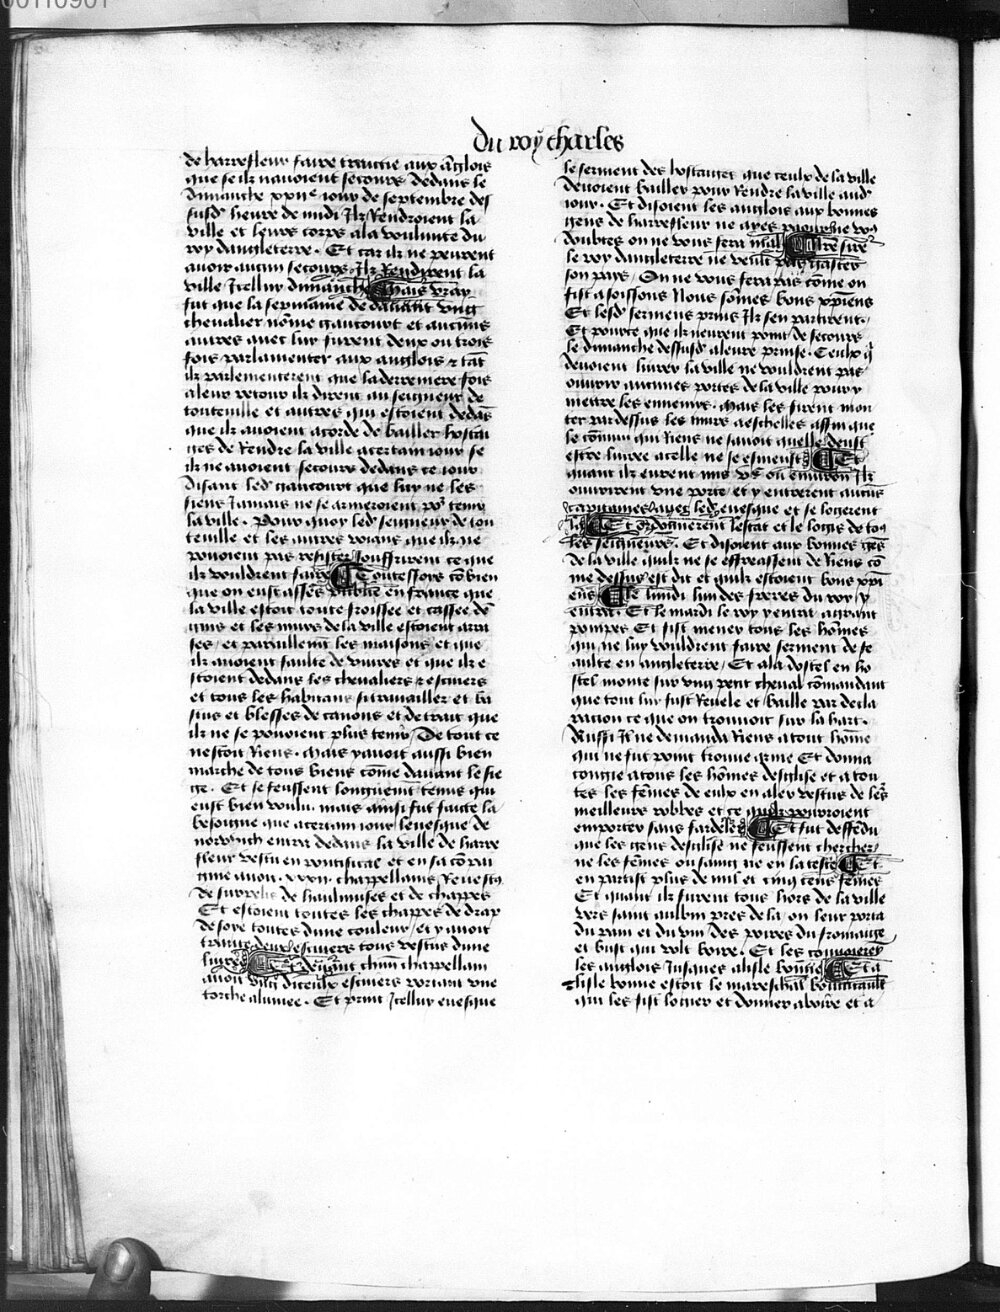 00110901
Du roy charles
de harrefleur faire traictie aux ãglois
que se ilz nauoient secours dedans le
dimanche xxiie iour de septembre des
susd heure de midi Ilz Rendroient la
ville et leurs corps ala voulunte du
roy dangleterre. Et car ilz ne peurent
auoir aucun secours. Ilz Rendirent la
ville Icelluy dimanche Mais vray
fut que la sepmaine de dauant vng
chevalier nõme gaucourt et aucuns
autres auec luy furent deux ou trois
fois parlamenter aux anglois & tãt
ilz parlementerent que la derreniere fois
aleur retour ilz dirent au seigneur de
touteuille et autres qui estoient dedãs
que ilz auoient acorde de bailler hostai
ges de Rendre la ville acertain iour se
ilz ne auoient secours dedans ce iour
disant led gaucourt que luy ne les
siens Iamais ne se armeroient po² tenir
la ville. Pour quoy led seigneur de tou
teuille et les autres voians que ilz ne
pouoient pas resister souffrirent ce que
ilz vouldrent faire Toutesfois cõbien
que on eust asses publie en france que
la ville estoit toute froissee et cassee de
gens et les murs de la ville estoient arra
ses / et parailleurs les maisons et que
ilz auoient faulte de viures et que ilz e
stoient dedans les chevaliers & escuiers
et tous les habitans si trauailler et ba
tus et blesses de canons et de trait que
ilz ne se pouoient plus tenir / De tout ce
nestoit Riens. Mais yauoit aussi bien
marche de tous biens cõme dauant le sie
ge. Et se feussent longuemt tenus qui
eust bien voulu. mais ainsi fut faicte la
besoigne que acertain iour leuesque de
norwych entra dedans la ville de harre
fleur vestu en pontifical et en sa cõpai
gnie auoit. xxxii. chappellains Reuestus
de surpelis de haulmuses et de chappes
Et estoient toutes les chappes de drap
de soye toutes dune couleur / et y auoit
trente deux escuiers tous vestus dune
liuree Et deuant chũn chappellain
auoit vng diceulx escuiers portant vne
torche alumee. Et print Icelluy euesque
le serment des hostaiges que ceulx de la ville
deuoient bailler pour Rendre la ville aud
iour. Et disoient les anglois aux bonnes
gens de harrefleur ne ayes paour ne vo⁹
doubtes on ne vous fera mal Nostre sire
le roy dangleterre ne veult pas gaster
son pays / On ne vous fera pas cõme on
fist a soissons Nous sõmes bons xp̃iens
Et lesd sermens prins Ilz sen partirent.
Et pource que ilz neurent point de secours
le dimanche dessusd aleure prinse. Ceulx q̃
deuoient liurer la ville ne vouldrent pas
ouurir aucunes portes de la ville pour y
mettre les ennemis. Mais les firent mon
ter par dessus les murs a eschelles affin que
le cõmun qui Riens ne sauoit quelle deust
estre liuree acelle ne se esmeust Et
quant ilz eurent mis vc ou enuiron Ilz
ouurirent vne porte / et y entrerent aucũs
capitaines auec led euesque et se logerent
la Et ordonnerent lestat et le logis de to⁹
les seigneurs. Et disoient aux bonnes gẽs
de la ville quilz ne se effreassent de Riens cõ
me dessus est dit et quilz estoient bons xp̃i
ens Le lundi lun des freres du roy / y
entra. Et le mardi le roy y entra agrant
pompes Et fist mener tous les hõmes
qui ne luy vouldrent faire serment de fe
aulte en angleterre / Et ala dostel en ho
stel monte sur vng petit cheual cõmandant
que tout luy fust Reuele et baille par decla
racion ce que on trouuoit sur la hart.
Aussi Il ne demanda Riens a tout hõme
qui ne fut point trouue arme Et donna
congie a tous les hõmes deglise et a tou
tes les fẽmes de eulx en aler vestus de le²s
meilleures robbes et ce quilz pourroient
emporter sans fardeler Et fut deffẽdu
que les gens deglise ne feussent cherchez
ne les fẽmes ou saing ne en la teste Et
en partist plus de mil et cinq cens fẽmes
Et quant ilz furent tous hors de la ville
vers saint aubin pres de la / on leur porta
du pain et du vin des poires du fromaige
et bust qui volt boire. Et les conuoierẽt
les anglois Iusques alisle bonne Et a
lisle bonne estoit le mareschal boucicault
qui les fist logier et donner aboire et a